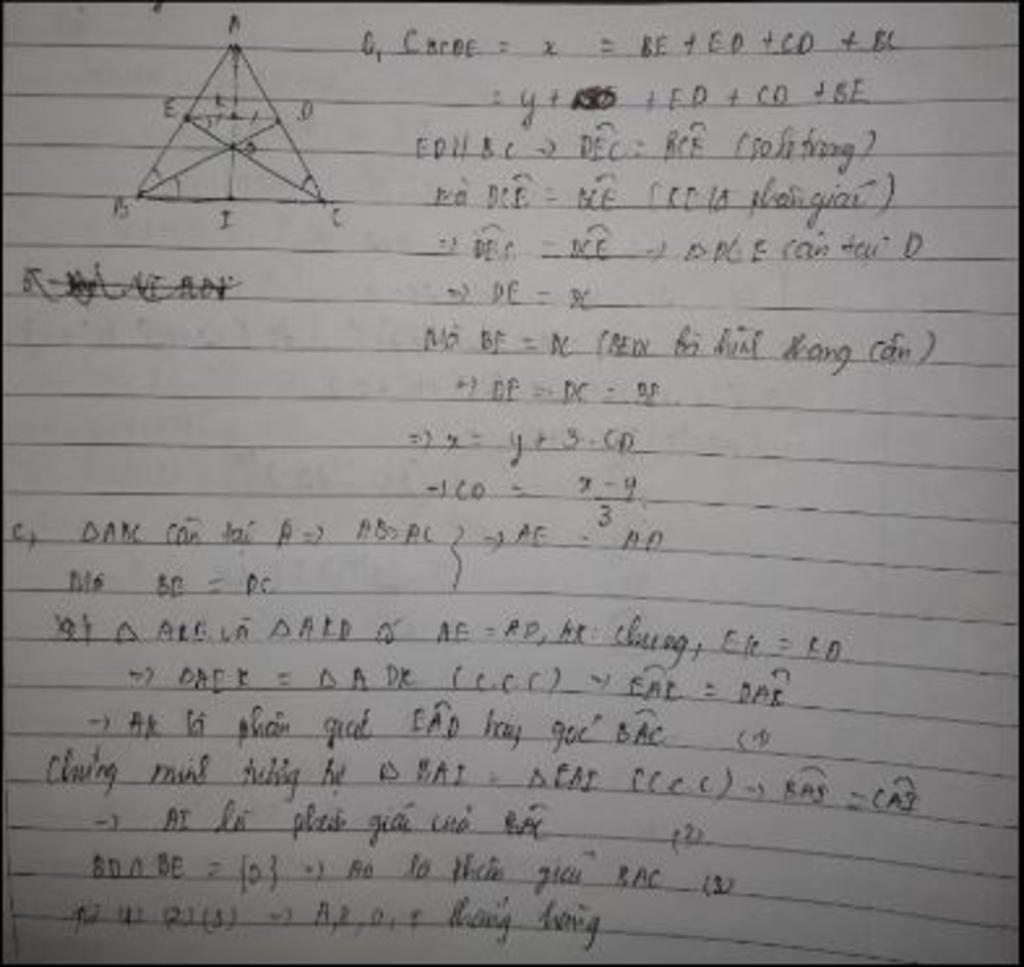 A
E
K
D
O
B
I
C
b, C BCDE = x = BE + ED + CD + BC
= y + ED + CD + BE
ED // BC → DÊC = BĈE (so le trong)
mà DĈE = BĈE (CE là phân giác)
⇒ DÊC = DĈE → Δ DCE cân tại D
⇒ DE = DC
Mà BE = DC (BEDC là hình thang cân)
⇒ DE = DC = BE
⇒ x = y + 3 . CD
→ CD = x - y / 3
c, ΔABC cân tại A ⇒ AB = AC } → AE = AD
Mà BE = DC
Δ AKE và Δ AKD có AE = AD, AK: chung, EK = KD
⇒ ΔAEK = Δ ADK (c c c) → EÂK = DÂK
→ AK là phân giác EÂD hay góc BÂC (1)
Chứng minh tương tự Δ BAI = Δ CAI (c c c) → BÂI = CÂI
→ AI là phân giác của BÂC (2)
BD ∩ BE = {O} → AO là phân giác BAC (3)
(1) (2) (3) → A, K, O, I thẳng hàng